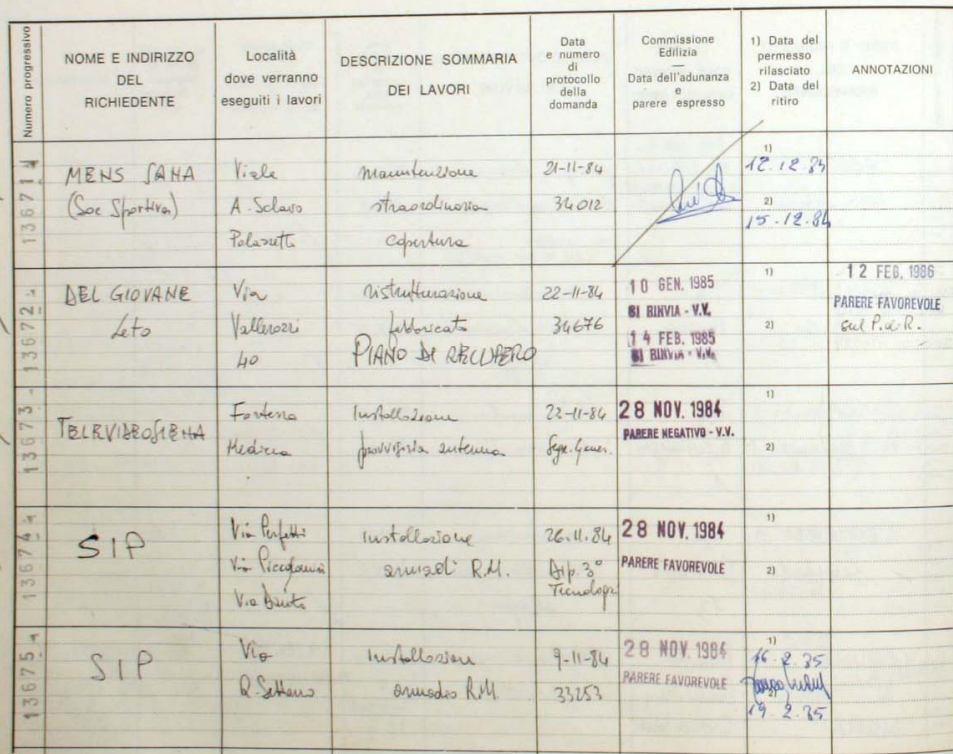 Numero progressivo
NOME E INDIRIZZO
DEL
RICHIEDENTE
Località
dove verranno
eseguiti i lavori
DESCRIZIONE SOMMARIA
DEI LAVORI
Data
e numero
di
protocollo
della
domanda
Commissione
Edilizia
—
Data dell'adunanza
e
parere espresso
1) Data del
permesso
rilasciato
2) Data del
ritiro
ANNOTAZIONI
13671
MENS SANA
(Soc Sportiva)
Viale
A. Sclavo
Palazzetto
manutenzione
straordinaria
copertura
21-11-84
34012
1)
12.12.84
2)
15.12.84
13672
DEL GIOVANE
Leto
Via
Vallerozzi
40
ristrutturazione
fabbricato
PIANO DI RECUPERO
22-11-84
34676
10 GEN. 1985
SI RINVIA - V.V.
14 FEB. 1985
SI RINVIA - V.V.
1)
2)
12 FEB. 1986
PARERE FAVOREVOLE
sul P.d.R.
13673
TELEVIDEOSIENA
Fortezza
Medicea
Installazione
provvisoria antenna
22-11-84
Segr. Gener.
28 NOV. 1984
PARERE NEGATIVO - V.V.
1)
2)
13674
SIP
Via Perfetti
Via Piccolomini
Via
installazione
armadi R.M.
26.11.84
Rip. 3°
28 NOV. 1984
PARERE FAVOREVOLE
1)
2)
13675
SIP
Via
Q. Settano
installazione
armadio R.M.
9-11-84
33253
28 NOV. 1984
PARERE FAVOREVOLE
1)
16.2.85
2)
19.2.85